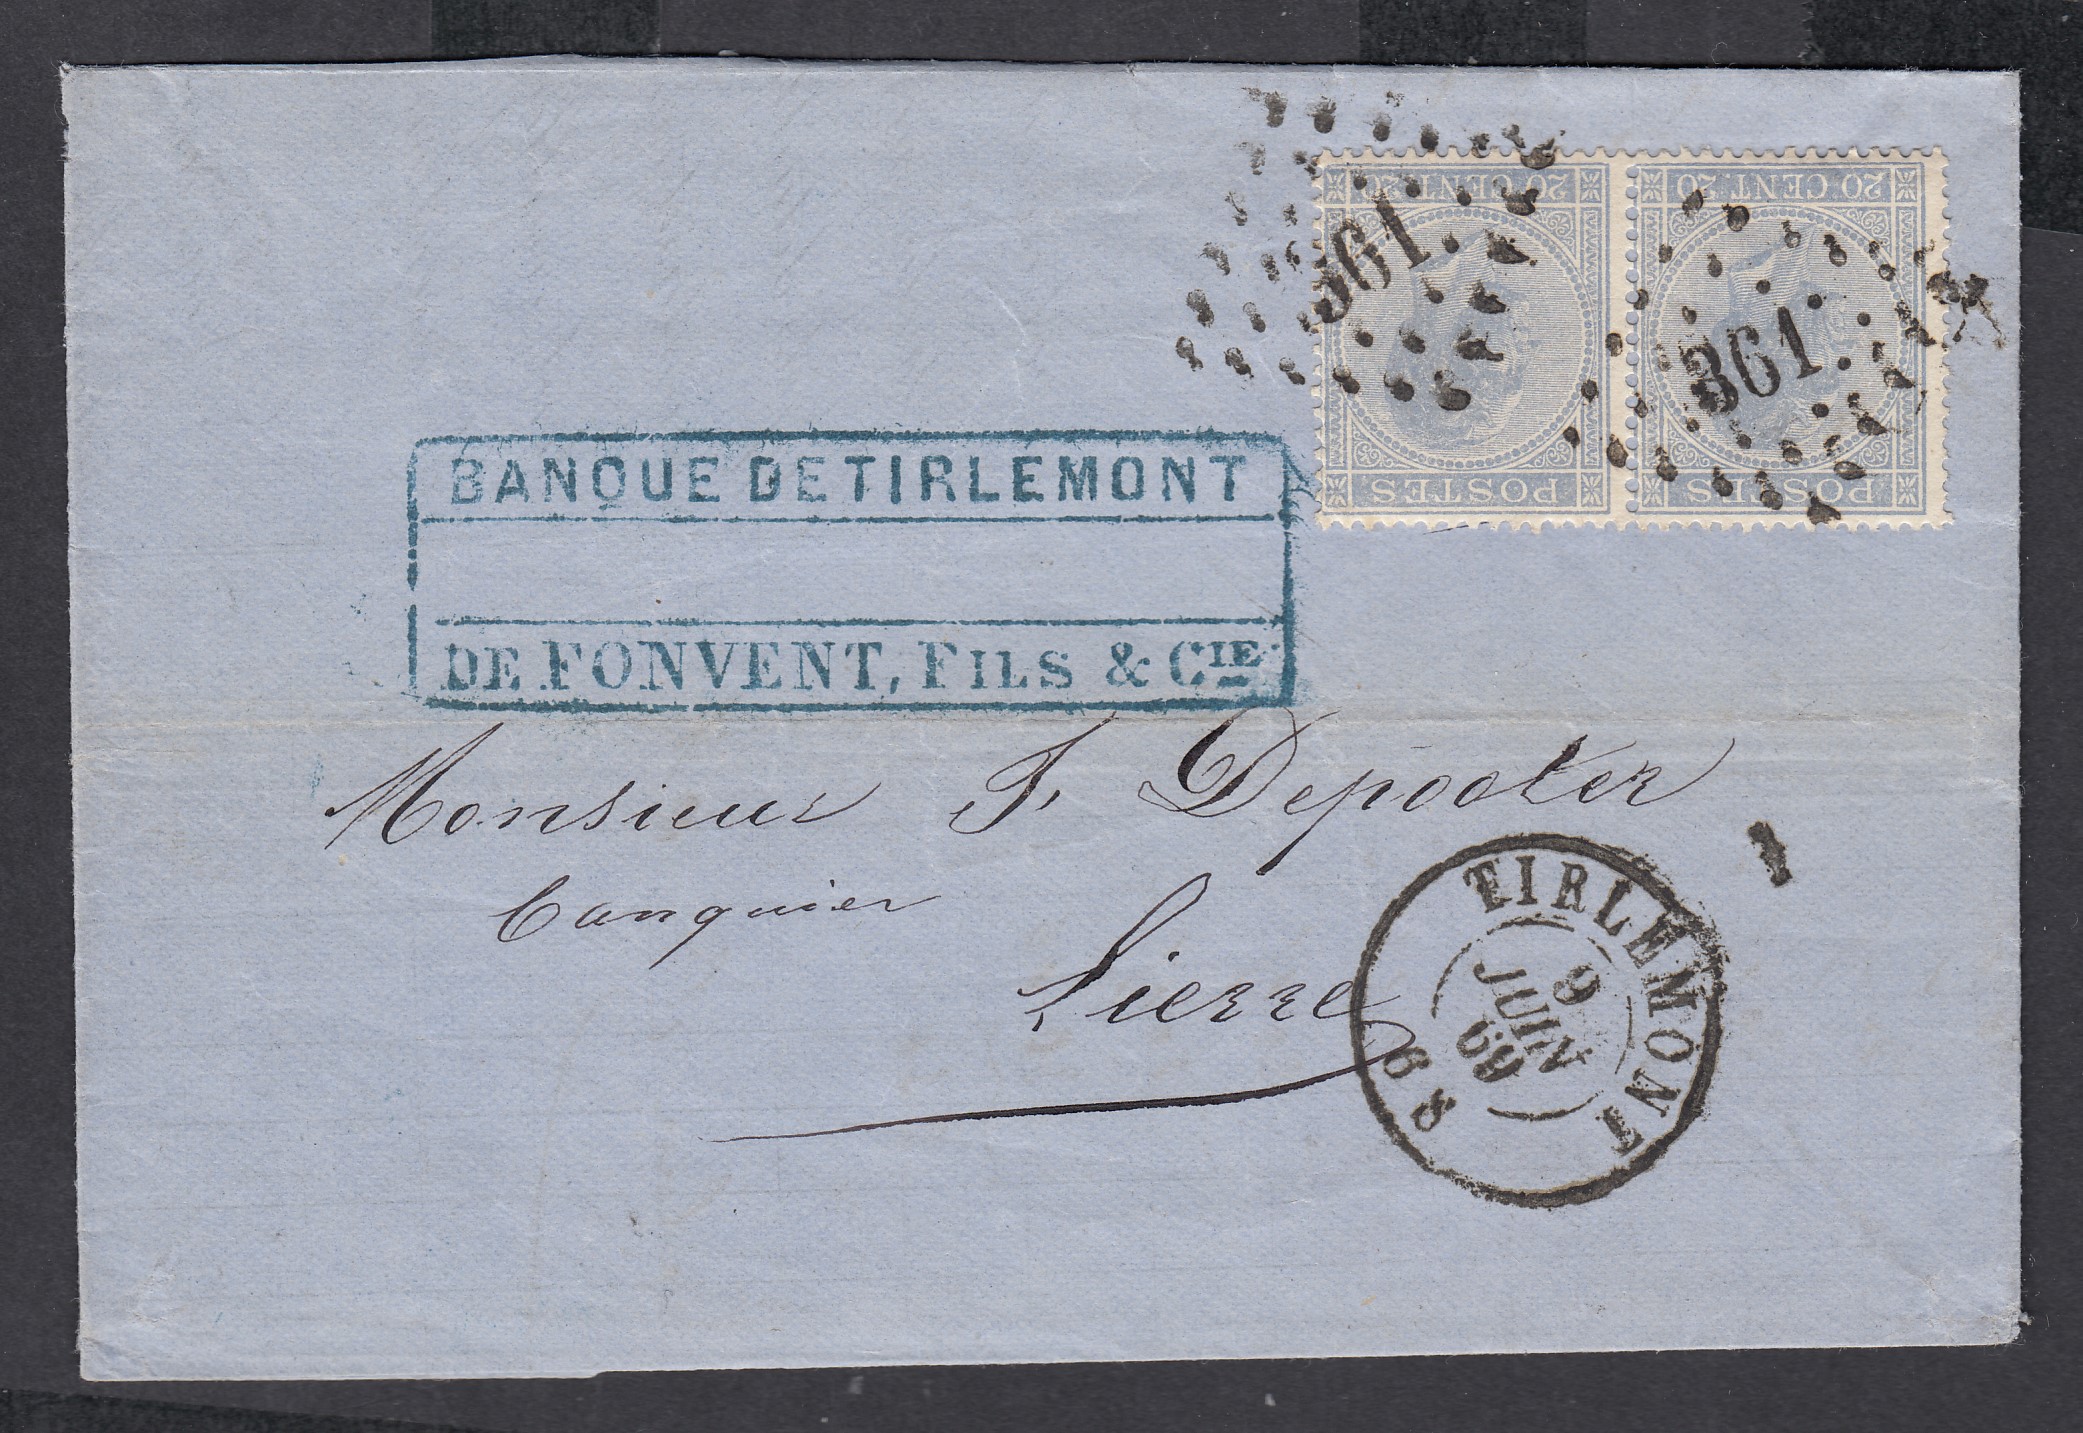 20 CENT. 20
20 CENT. 20
361
361
POSTES
POSTES
BANQUE DE TIRLEMONT
DE FONVENT, FILS & CIE
Monsieur F. Depooter
banquier
Lierre
1
TIRLEMONT
9
JUIN
69
8 9